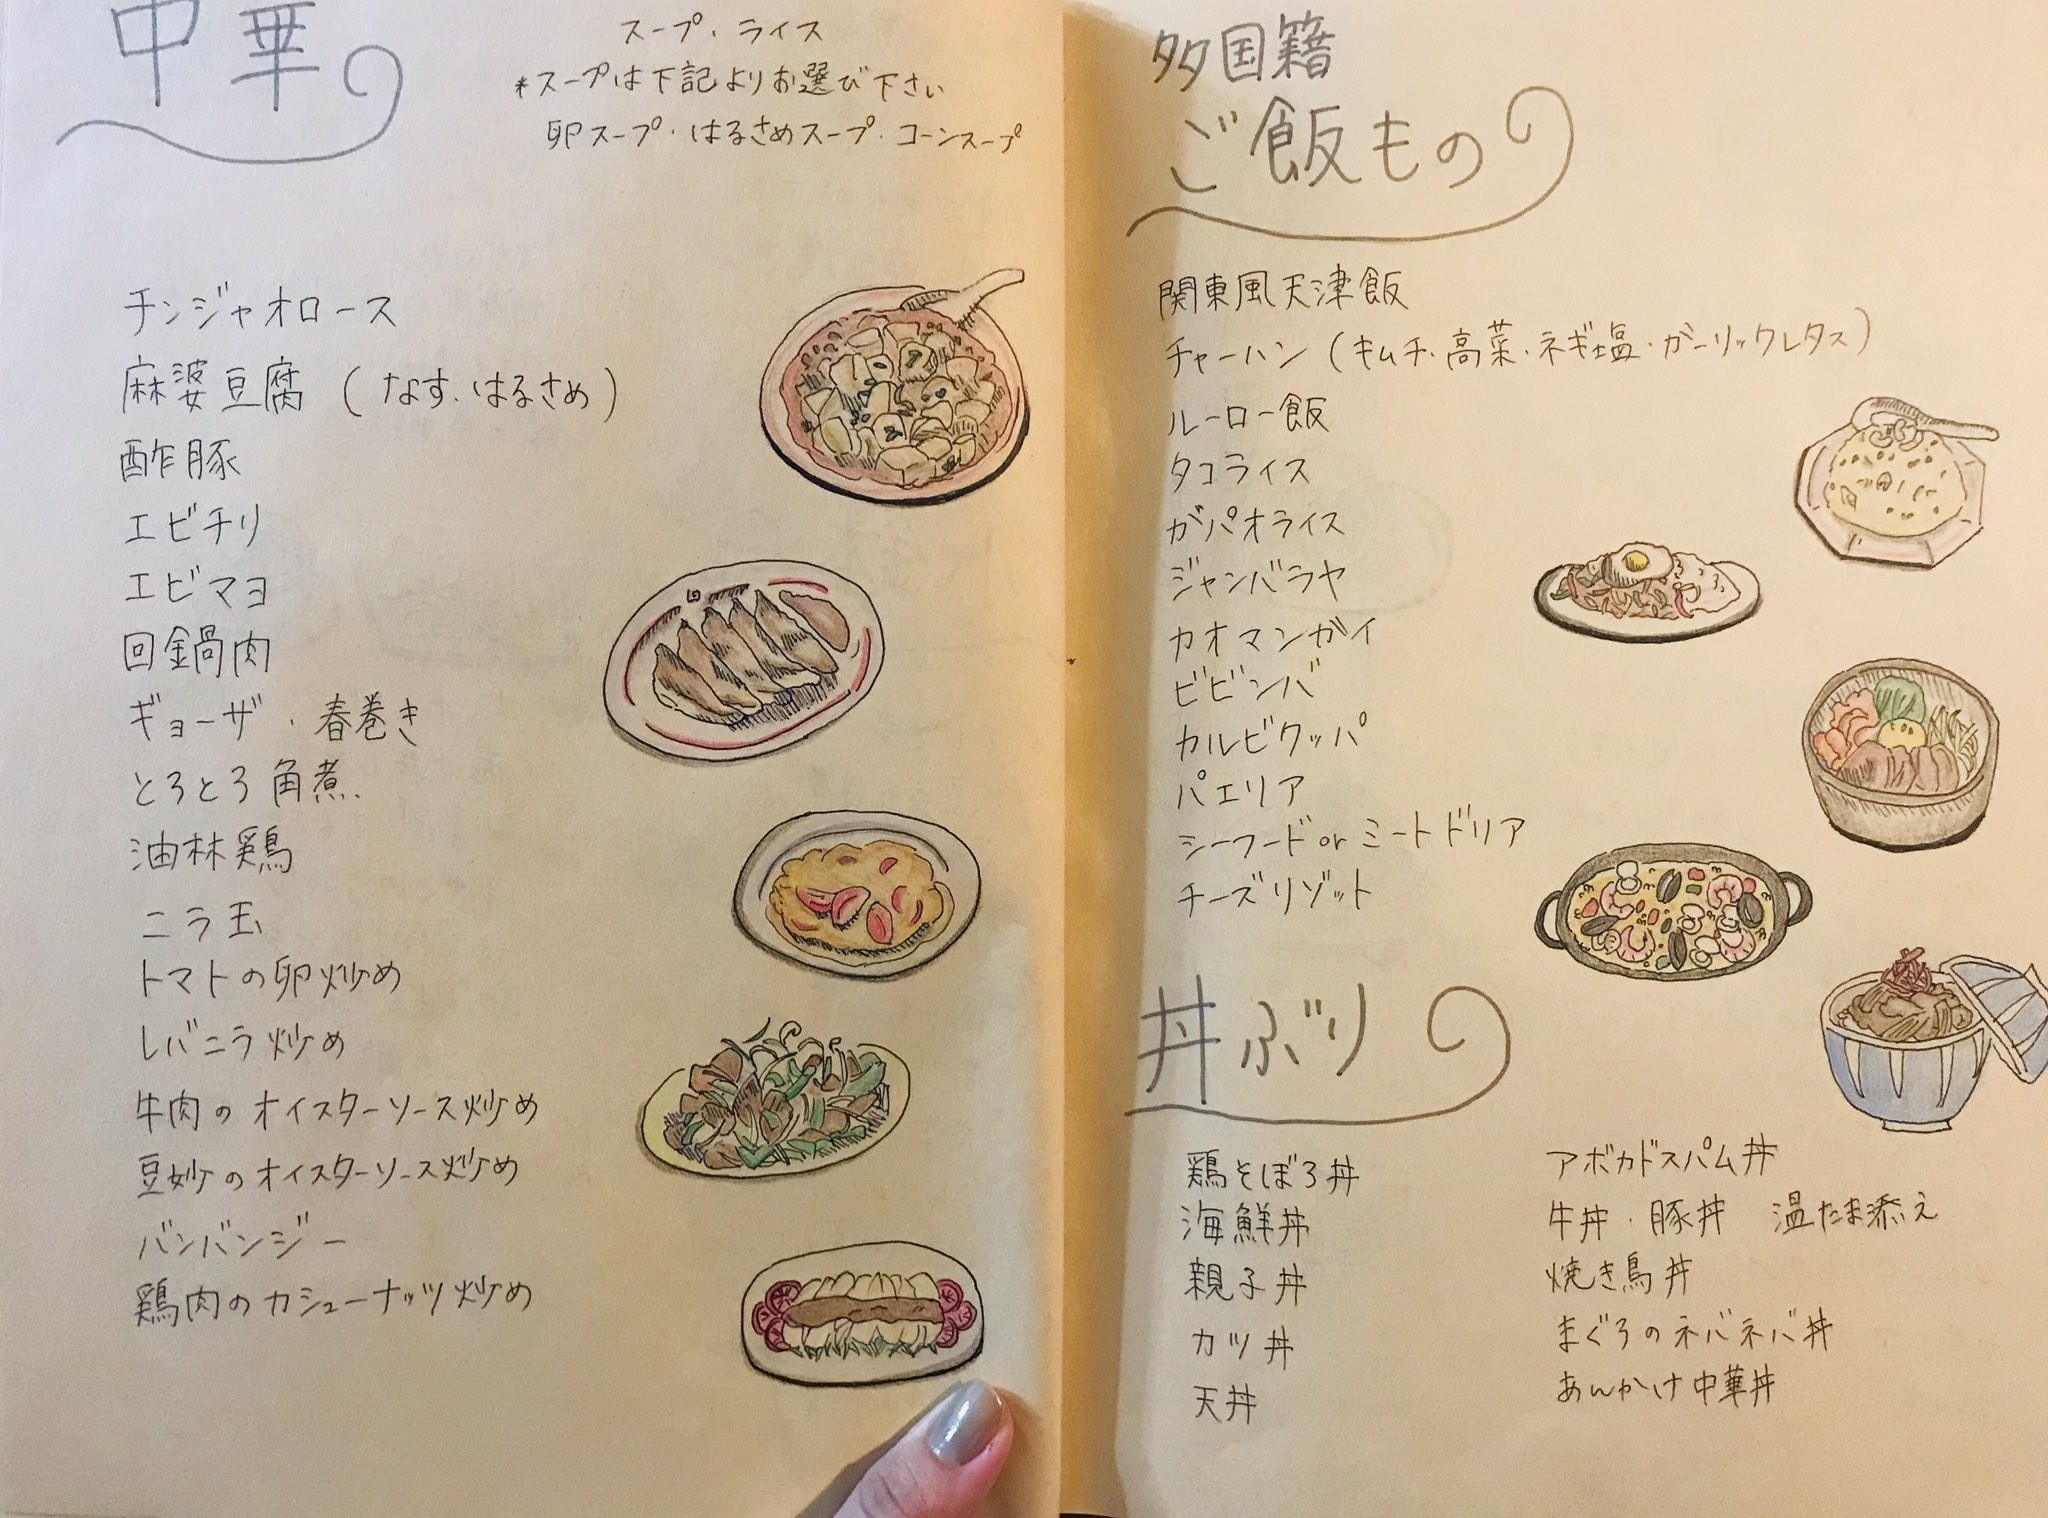 中華
スープ・ライス
*スープは下記よりお選び下さい
卵スープ・はるさめスープ・コーンスープ
チンジャオロース
麻婆豆腐 (なす・はるさめ)
酢豚
エビチリ
エビマヨ
回鍋肉
ギョーザ・春巻き
とろとろ角煮
油林鶏
ニラ玉
トマトの卵炒め
レバニラ炒め
牛肉のオイスターソース炒め
豆妙のオイスターソース炒め
バンバンジー
鶏肉のカシューナッツ炒め
多国籍
ご飯もの
関東風天津飯
チャーハン (キムチ・高菜・ネギ塩・ガーリックレタス)
ルーロー飯
タコライス
ガパオライス
ジャンバラヤ
カオマンガイ
ビビンバ
カルビクッパ
パエリア
シーフード or ミートドリア
チーズリゾット
丼ぶり
鶏そぼろ丼
海鮮丼
親子丼
カツ丼
天丼
アボカドスパム丼
牛丼・豚丼 温たま添え
焼き鳥丼
まぐろのネバネバ丼
あんかけ中華丼